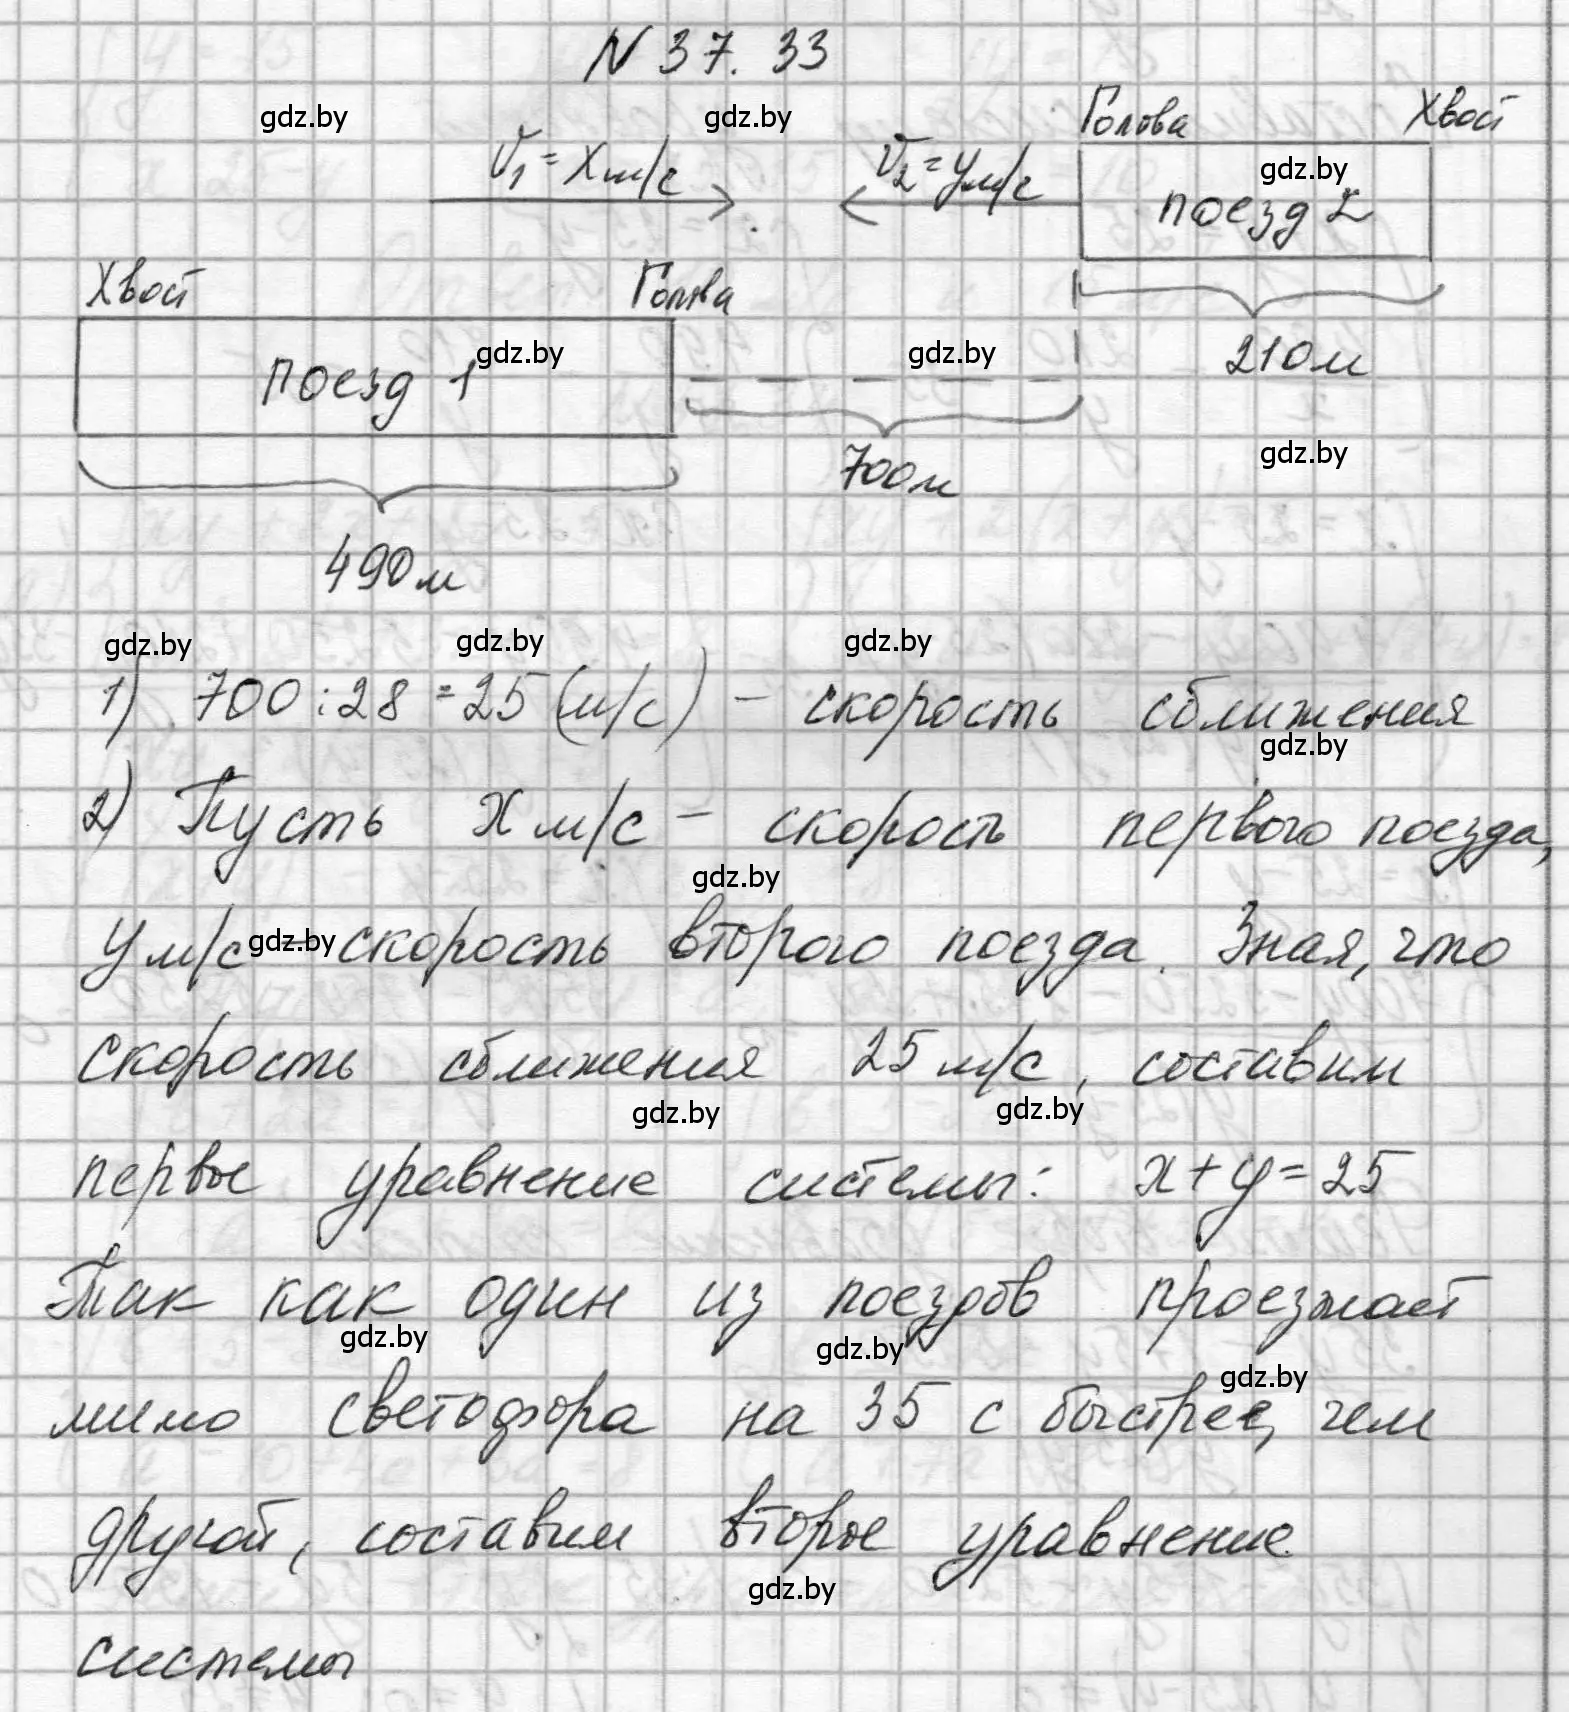 N 37. 33
gdz.by gdz.by Голова Хвост
V₁ = x м/с V₂ = y м/с gdz.by
поезд 2
Хвост Голова
поезд 1 gdz.by gdz.by 210 м
700 м gdz.by
490 м
gdz.by gdz.by gdz.by
1) 700 : 28 = 25 (м/с) – скорость сближения
gdz.by
2) Пусть x м/с – скорость первого поезда,
gdz.by
y м/с – скорость второго поезда. Зная, что
gdz.by
скорость сближения 25 м/с, составим
gdz.by gdz.by
первое уравнение системы: x + y = 25
Так как один из поездов проезжает
gdz.by gdz.by
мимо светофора на 35 с быстрее, чем
gdz.by
другой, составим второе уравнение
gdz.by
системы